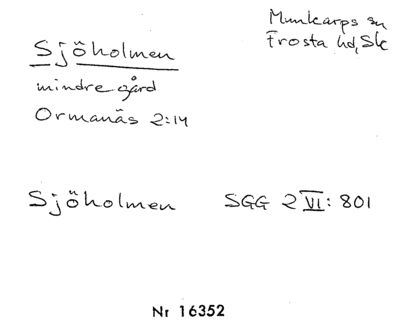 Munkarps sn
Frosta hd, Sk
Sjöholmen
mindre gård
Ormanäs 2:14
Sjöholmen SGG 2 VI: 801
Nr 16352